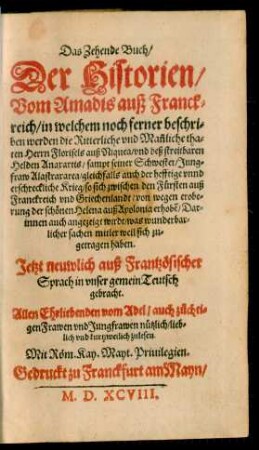 Das Zehende Buch/
Der Historien/
Vom Amadis auß Franck-
reich/ in welchem noch ferner beschri-
ben werden die Ritterliche vnd Mañliche tha-
ten Herrn Florisels auß Niquea/ vnd deß streitbaren
Helden Anaxartis/ sampt seiner Schwester/ Jung-
fraw Alastraxarea/ gleichfalls auch der hefftige vnnd
erschreckliche Krieg/ so sich zwischen den Fürsten auß
Franckreich vnd Griechenland/ von wegen erobe-
rung der schönen Helena auß Apolonia erhobē/ Dar-
innen auch angezeigt wirdt/ was wunderbar-
licher sachen mitler weil sich zu-
getragen haben.
Jetzt neuwlich auß Frantzösischer
Sprach in vnser gemein Teutsch
gebracht.
Allen Ehrliebenden vom Adel/ auch züchti-
gen Frawen vnd Jungfrawen nützlich/ lieb-
lich vnd kurtzweilich zulesen.
Mit Röm. Kay. Mayt. Priuilegien.
Gedruckt zu Franckfurt am Mayn/
M. D. XCVIII.